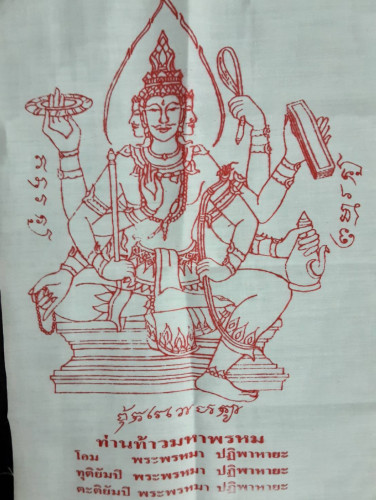 ท่านท้าวมหาพรหม
โอม พระพรหมา ปฏิพาหายะ
ทุติยัมปี พระพรหมา ปฏิพาหายะ
ตะติยัมปี พระพรหมา ปฏิพาหายะ